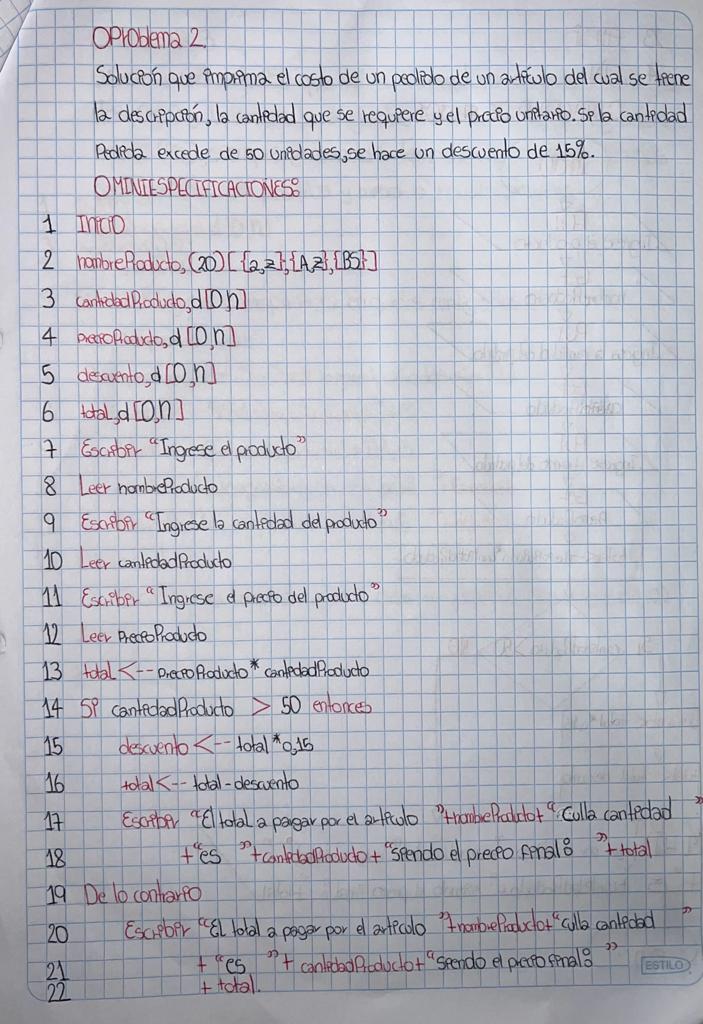 OProblema 2.
Solución que imprima el costo de un pedido de un artículo del cual se tiene
la descripción, la cantidad que se requiere y el precio unitario. Si la cantidad
Pedida excede de 50 unidades, se hace un descuento de 15%.
OMINIESPECIFICACIONES:
1 Inicio
2 nombreProducto, (20) [ {a,z},{A,z},{BS}]
3 cantidadProducto, d[0,n]
4 precioProducto, d [0,n]
5 descuento, d[0,n]
6 total, d [0,n]
7 Escribir "Ingrese el producto"
8 Leer nombreProducto
9 Escribir "Ingrese la cantidad del producto"
10 Leer cantidadProducto
11 Escribir "Ingrese el precio del producto"
12 Leer PrecioProducto
13 total <-- precioProducto * cantidadProducto
14 Si cantidadProducto > 50 entonces
15 descuento <-- total *0,15
16 total <-- total-descuento
17 Escribir "El total a pagar por el artículo "+nombreProducto+" Culla cantidad "
18 +"es "+cantidadProducto+"siendo el precio final: "+total
19 De lo contrario
20 Escribir "El total a pagar por el artículo "+nombreProducto+"culla cantidad "
21 + "es "+ cantidadProducto+"siendo el precio final: "
22 + total.
ESTILO